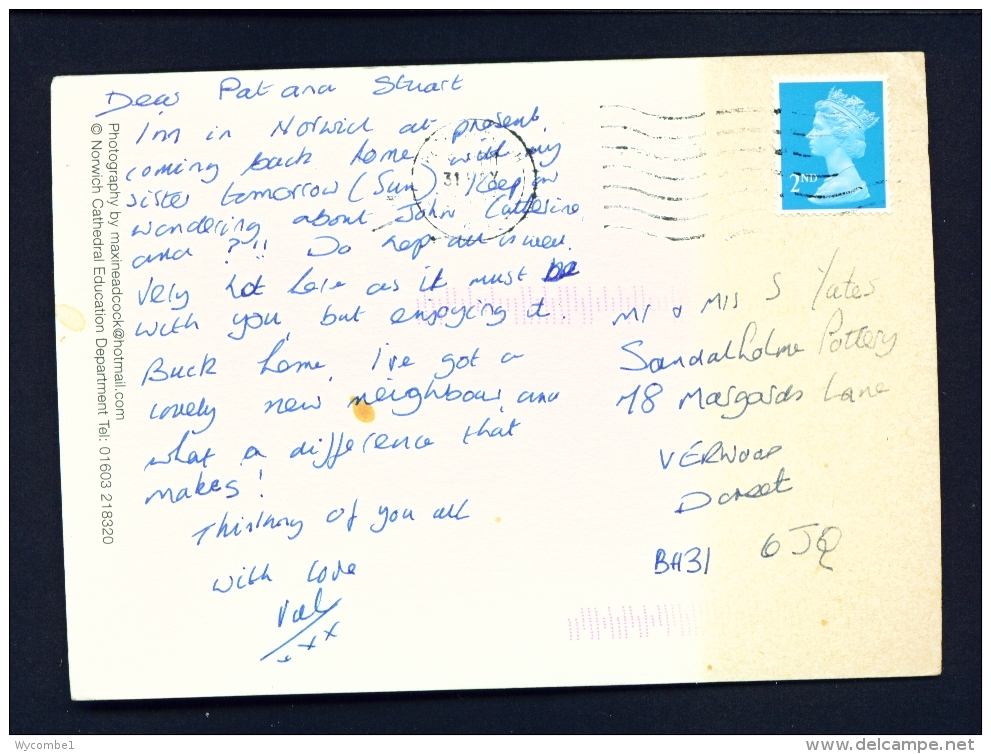 Dear Pat and Stuart
I'm in Norwich at present,
coming back home with my
sister tomorrow (Sun). Keep on
wondering about John Catherine,
and ?!! Do hope all is well.
Very hot here as it must be
with you, but enjoying it.
Back home, I've got a
lovely new neighbour, and
what a difference that
makes!
Thinking of you all
with love
Val
xxx
31
2ND
Mr & Mrs S Yates
Sandalholme Pottery
78 Margards Lane
VERWOOD
Dorset
BH31 6JQ
Photography by maxineadcock@hotmail.com
© Norwich Cathedral Education Department Tel: 01603 218320
Wycombe1
delcampe.net